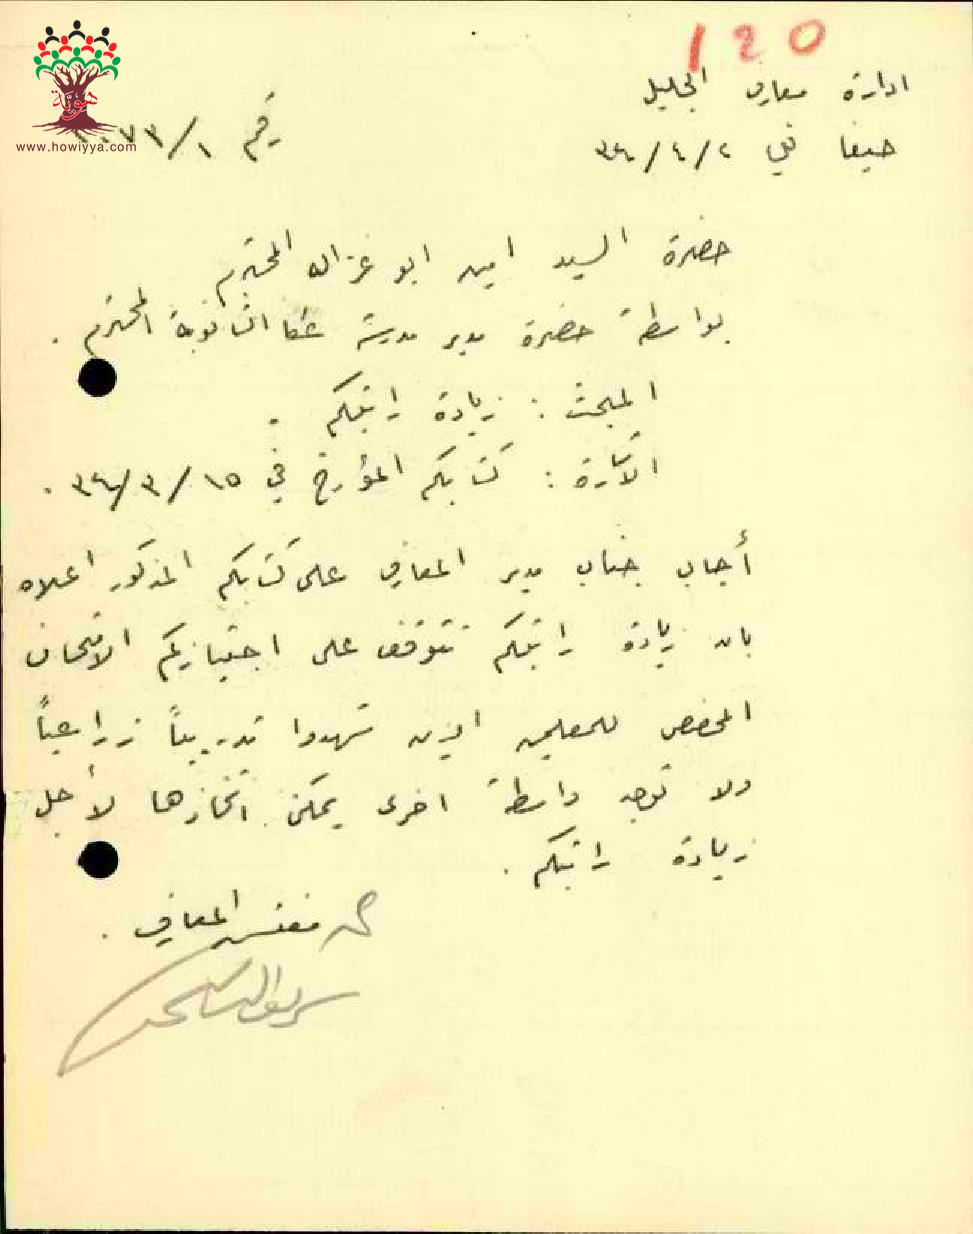 120
ادارة معارف الجليل
حيفا في ٣٤/٤/٢
رقم ٧٣/١
هوية
www.howiyya.com
حضرة السيد امين ابو غزاله المحترم
بواسطة حضرة مدير مدرسة عكا الثانوية المحترم .
المبحث : زيادة راتبكم .
الاشارة : كتابكم المؤرخ في ١٥/٣/٣٤ .
أجاب جناب مدير المعارف على كتابكم المذكور اعلاه
بان زيادة راتبكم تتوقف على اجتيازكم الامتحان
المخصص للمعلمين الذين شهدوا تدريباً زراعياً
ولا توجد واسطة اخرى يمكن اتخاذها لأجل
زيادة راتبكم .
مفتش المعارف .